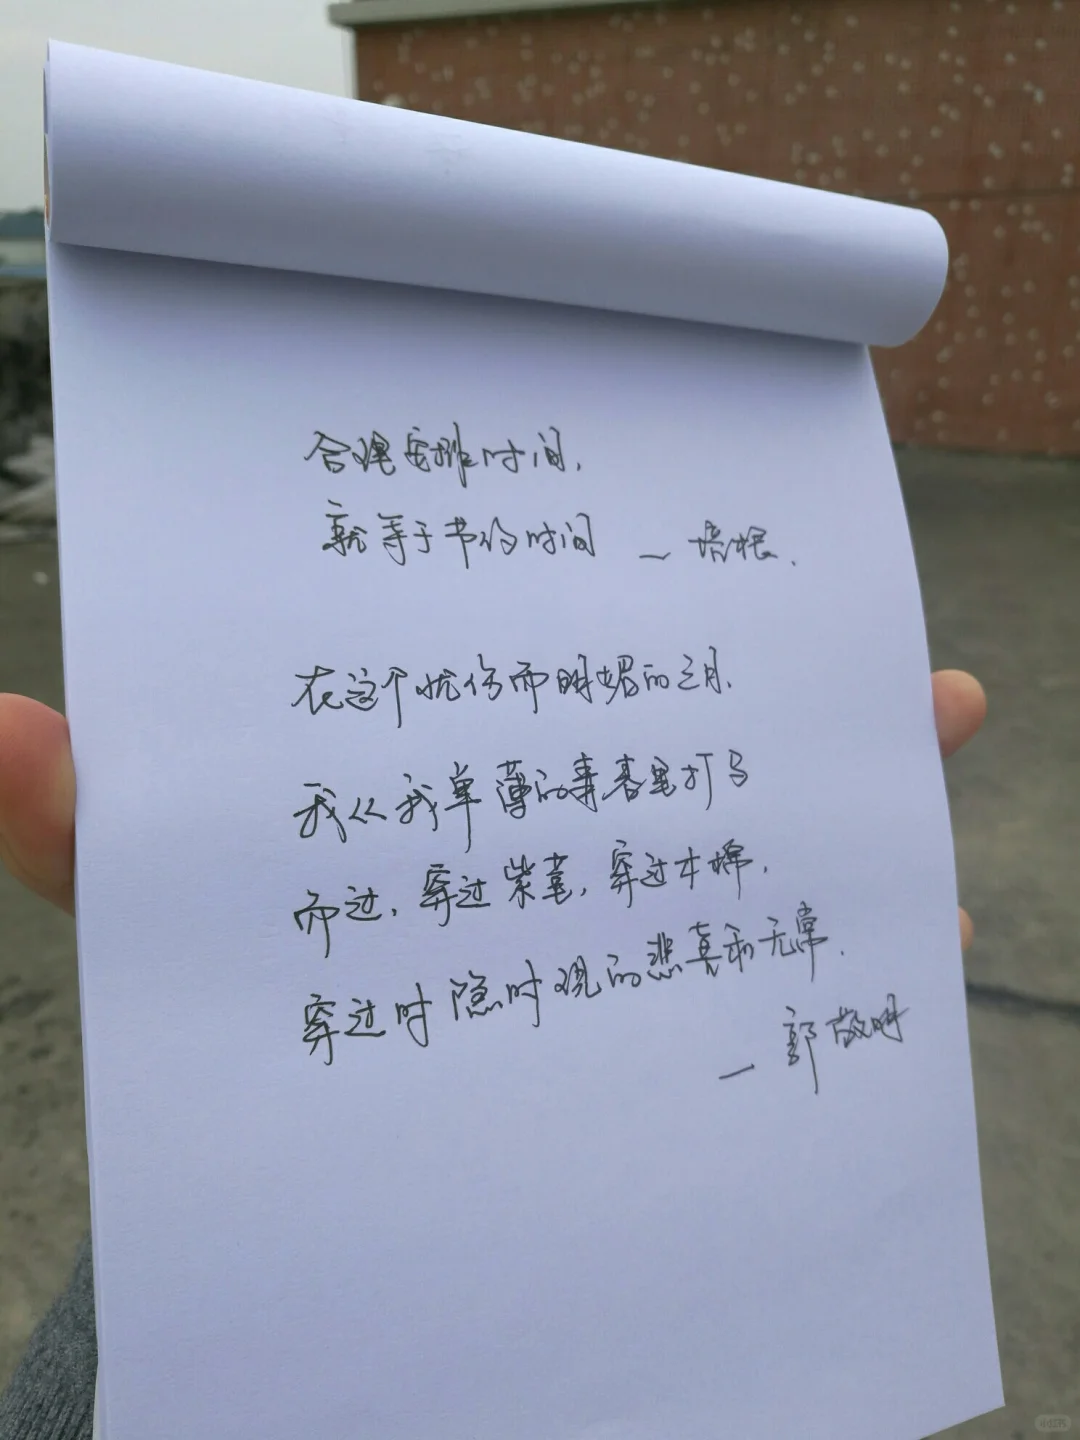 合理安排时间,
就等于节约时间 — 培根.
在这个忧伤而明媚的三月,
我从我单薄的青春里打马
而过,穿过紫堇,穿过木棉,
穿过时隐时现的悲喜和无常.
— 郭敬明
小红书